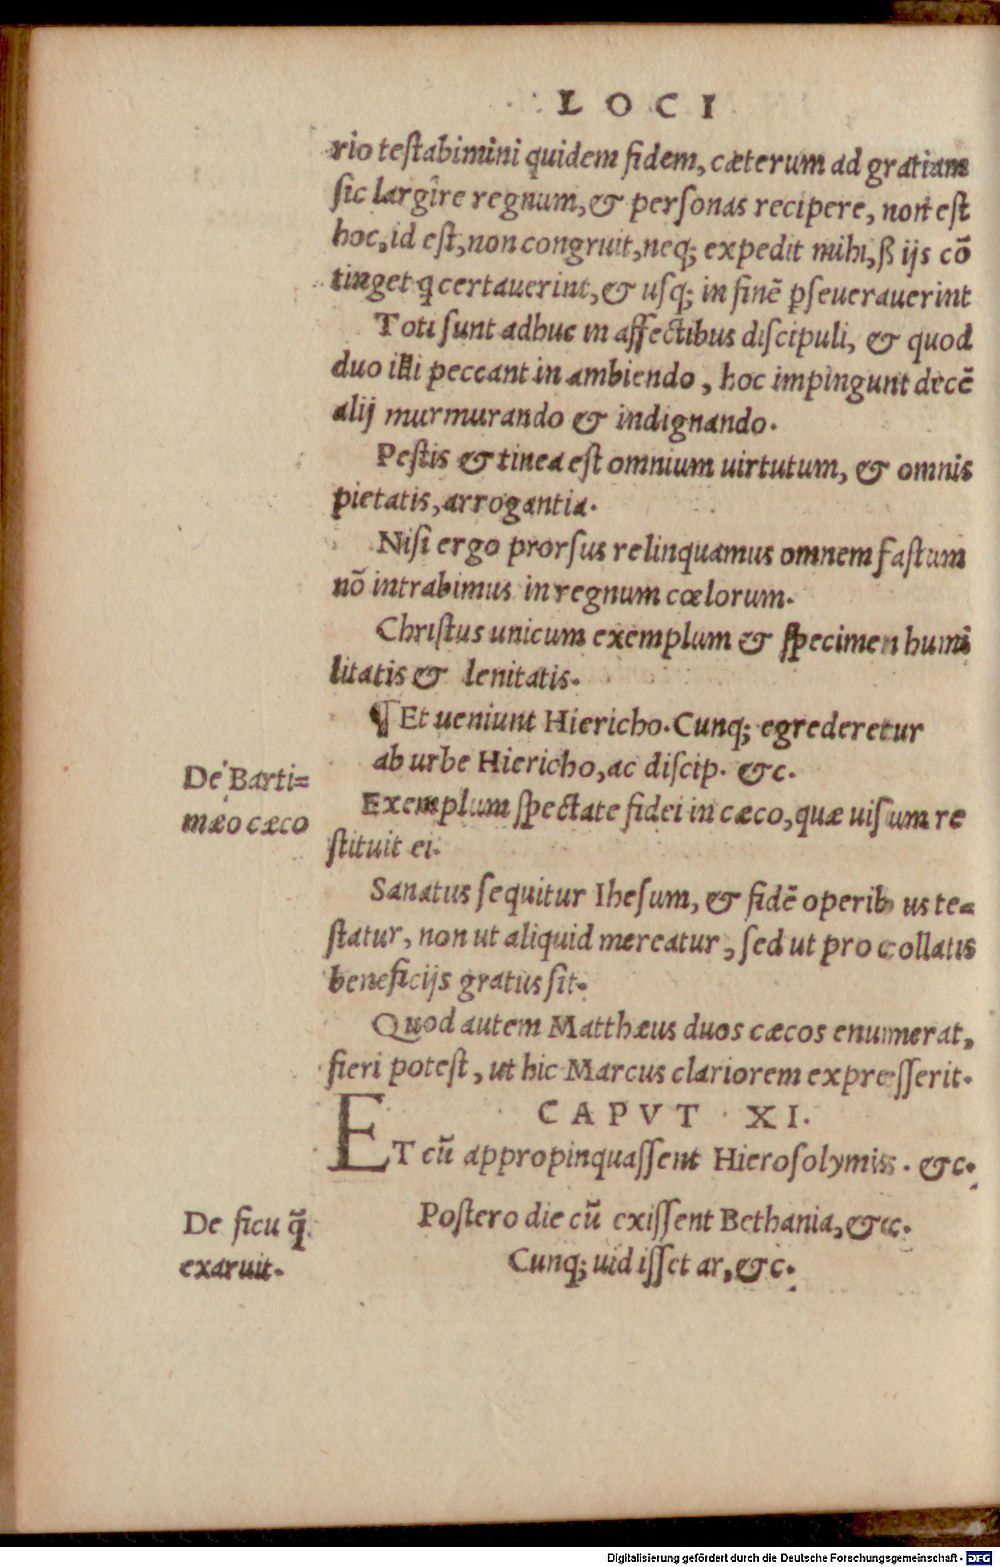 LOCI
rio teſtabimini quidem fidem, cæterum ad gratiam
ſic largire regnum, & perſonas recipere, non eſt
hoc, id eſt, non congruit, neq; expedit mihi, ß ijs cō
tinget q certauerint, & uſq; in finē pſeuerauerint
Toti ſunt adhuc in affectibus diſcipuli, & quod
duo illi peccant in ambiendo, hoc impingunt decē
alij murmurando & indignando.
Peſtis & tinea eſt omnium uirtutum, & omnis
pietatis, arrogantia.
Niſi ergo prorſus relinquamus omnem faſtum
nō intrabimus in regnum cœlorum.
Chriſtus unicum exemplum & ſpecimen humi
litatis & lenitatis.
¶ Et ueniunt Hiericho. Cunq; egrederetur
ab urbe Hiericho, ac diſcip. &c.
De Barti=
mæo cæco
Exemplum ſpectate fidei in cæco, quæ uiſum re
ſtituit ei.
Sanatus ſequitur Iheſum, & fidē operibus te=
ſtatur, non ut aliquid mereatur, ſed ut pro collatis
beneficijs gratus ſit.
Quod autem Matthæus duos cæcos enumerat,
fieri poteſt, ut hic Marcus clariorem expreſſerit.
CAPVT XI.
ET cū appropinquaſſent Hieroſolymis. &c.
De ficu q̄
exaruit.
Poſtero die cū exiſſent Bethania, &c.
Cunq; uidiſſet ar, &c.
Digitalisierung gefördert durch die Deutsche Forschungsgemeinschaft - DFG